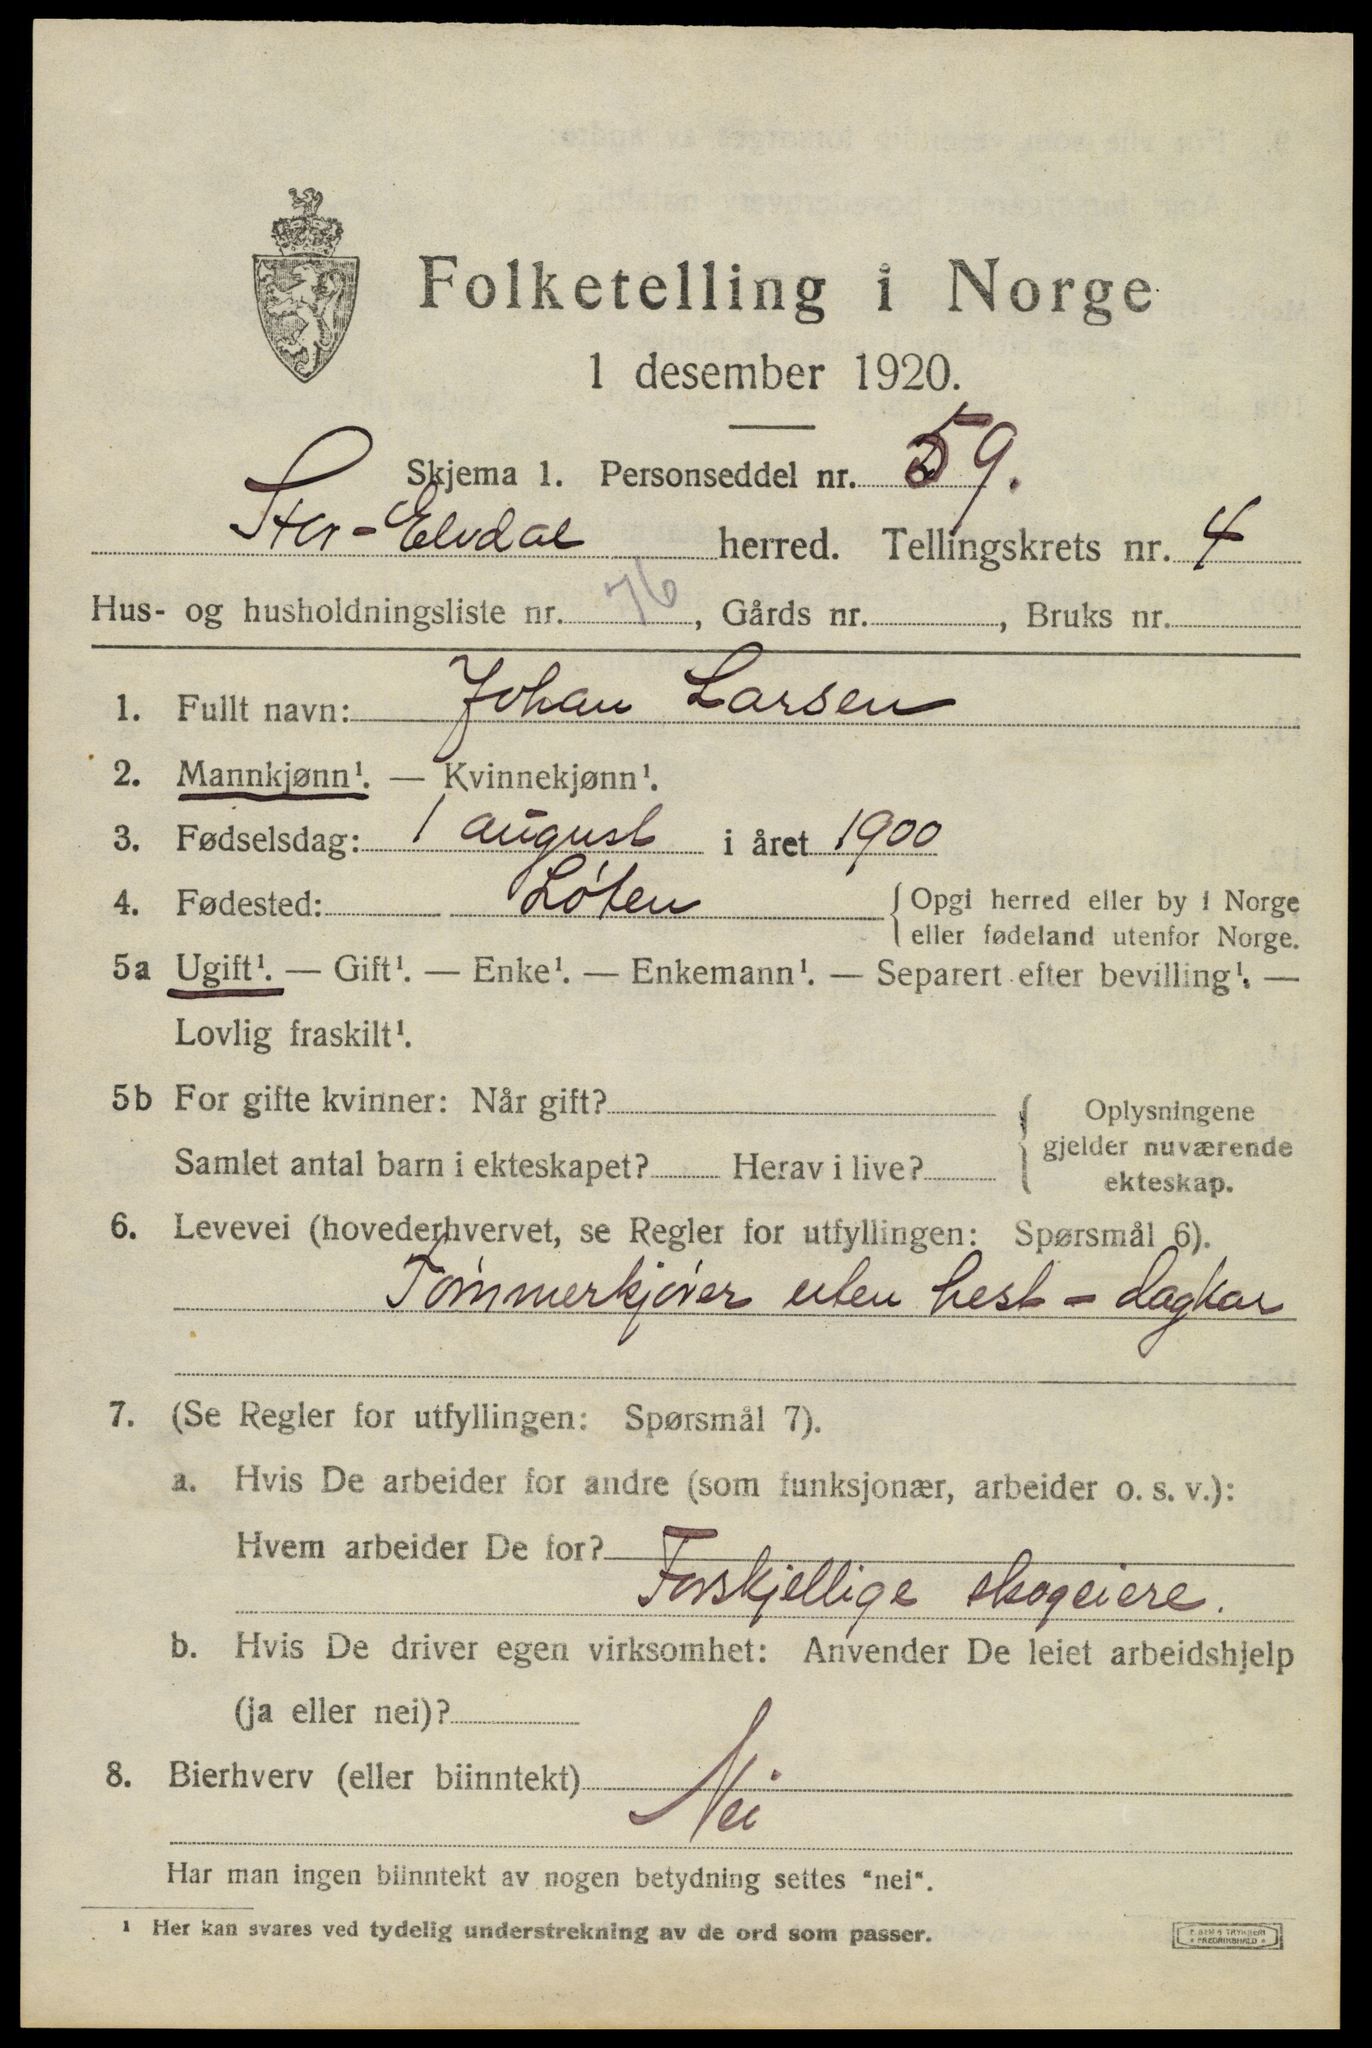 Folketelling i Norge
1 desember 1920.
Skjema 1. Personseddel nr. 59.
Stor-Elvdal herred. Tellingskrets nr. 4
Hus- og husholdningsliste nr. 76, Gårds nr. , Bruks nr.
1. Fullt navn: Johan Larsen
2. Mannkjønn¹. — Kvinnekjønn¹.
3. Fødselsdag: 1 august i året 1900
4. Fødested: Løten { Opgi herred eller by i Norge
eller fødeland utenfor Norge.
5a Ugift¹. — Gift¹. — Enke¹. — Enkemann¹. — Separert efter bevilling¹. —
Lovlig fraskilt¹.
5b For gifte kvinner: Når gift? { Oplysningene
gjelder nuværende
Samlet antal barn i ekteskapet? Herav i live?
ekteskap.
6. Levevei (hovederhvervet, se Regler for utfyllingen: Spørsmål 6).
Tømmerkjører uten hest - dagkar
7. (Se Regler for utfyllingen: Spørsmål 7).
a. Hvis De arbeider for andre (som funksjonær, arbeider o. s. v.):
Hvem arbeider De for?
Forskjellige skogeiere.
b. Hvis De driver egen virksomhet: Anvender De leiet arbeidshjelp
(ja eller nei)?
8. Bierhverv (eller biinntekt) Nei
Har man ingen biinntekt av nogen betydning settes "nei".
¹ Her kan svares ved tydelig understrekning av de ord som passer.